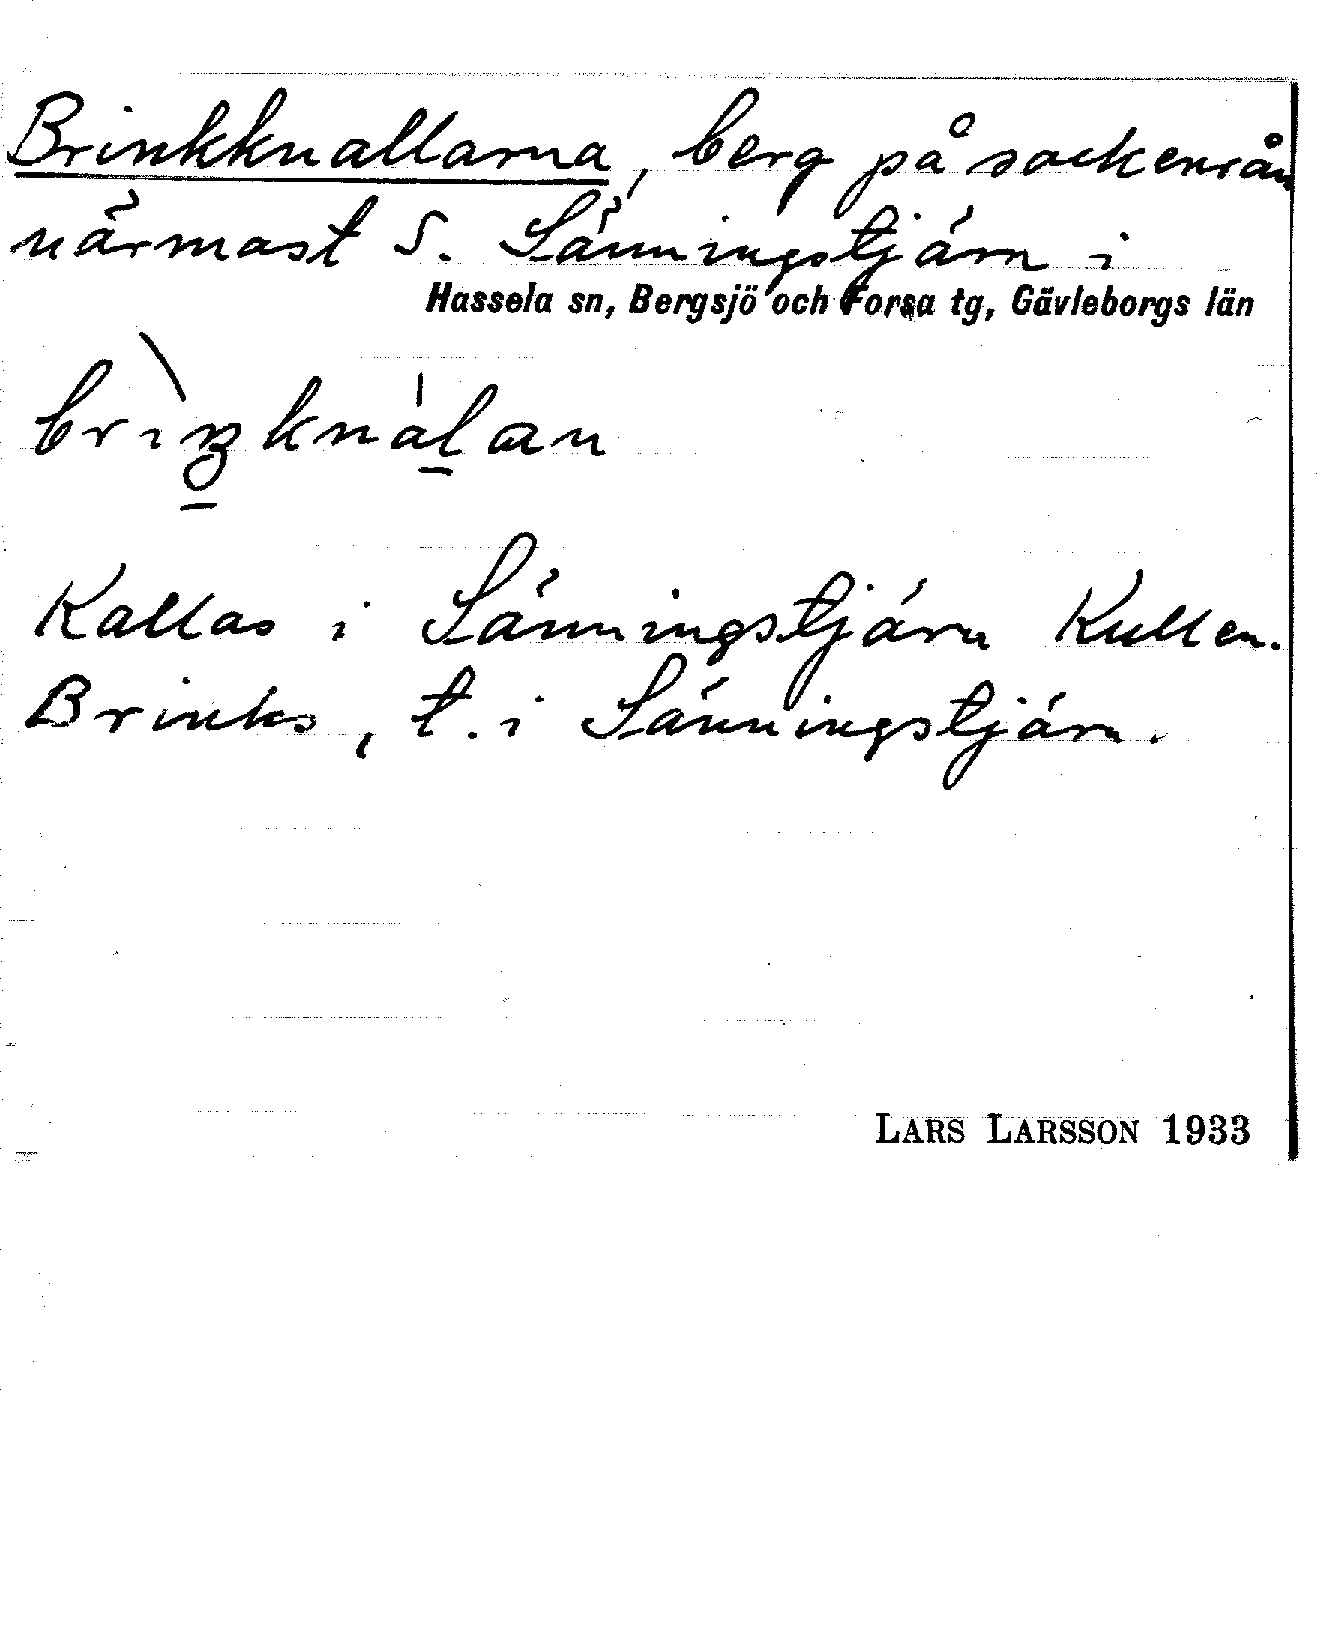 Brinkknallarna, berg på sockenrån
närmast S. Sänningstjärn i
Hassela sn, Bergsjö och Forsa tg, Gävleborgs län
Kallas i Sänningstjärn Kullen.
Brinks, t. i Sänningstjärn.
LARS LARSSON 1933